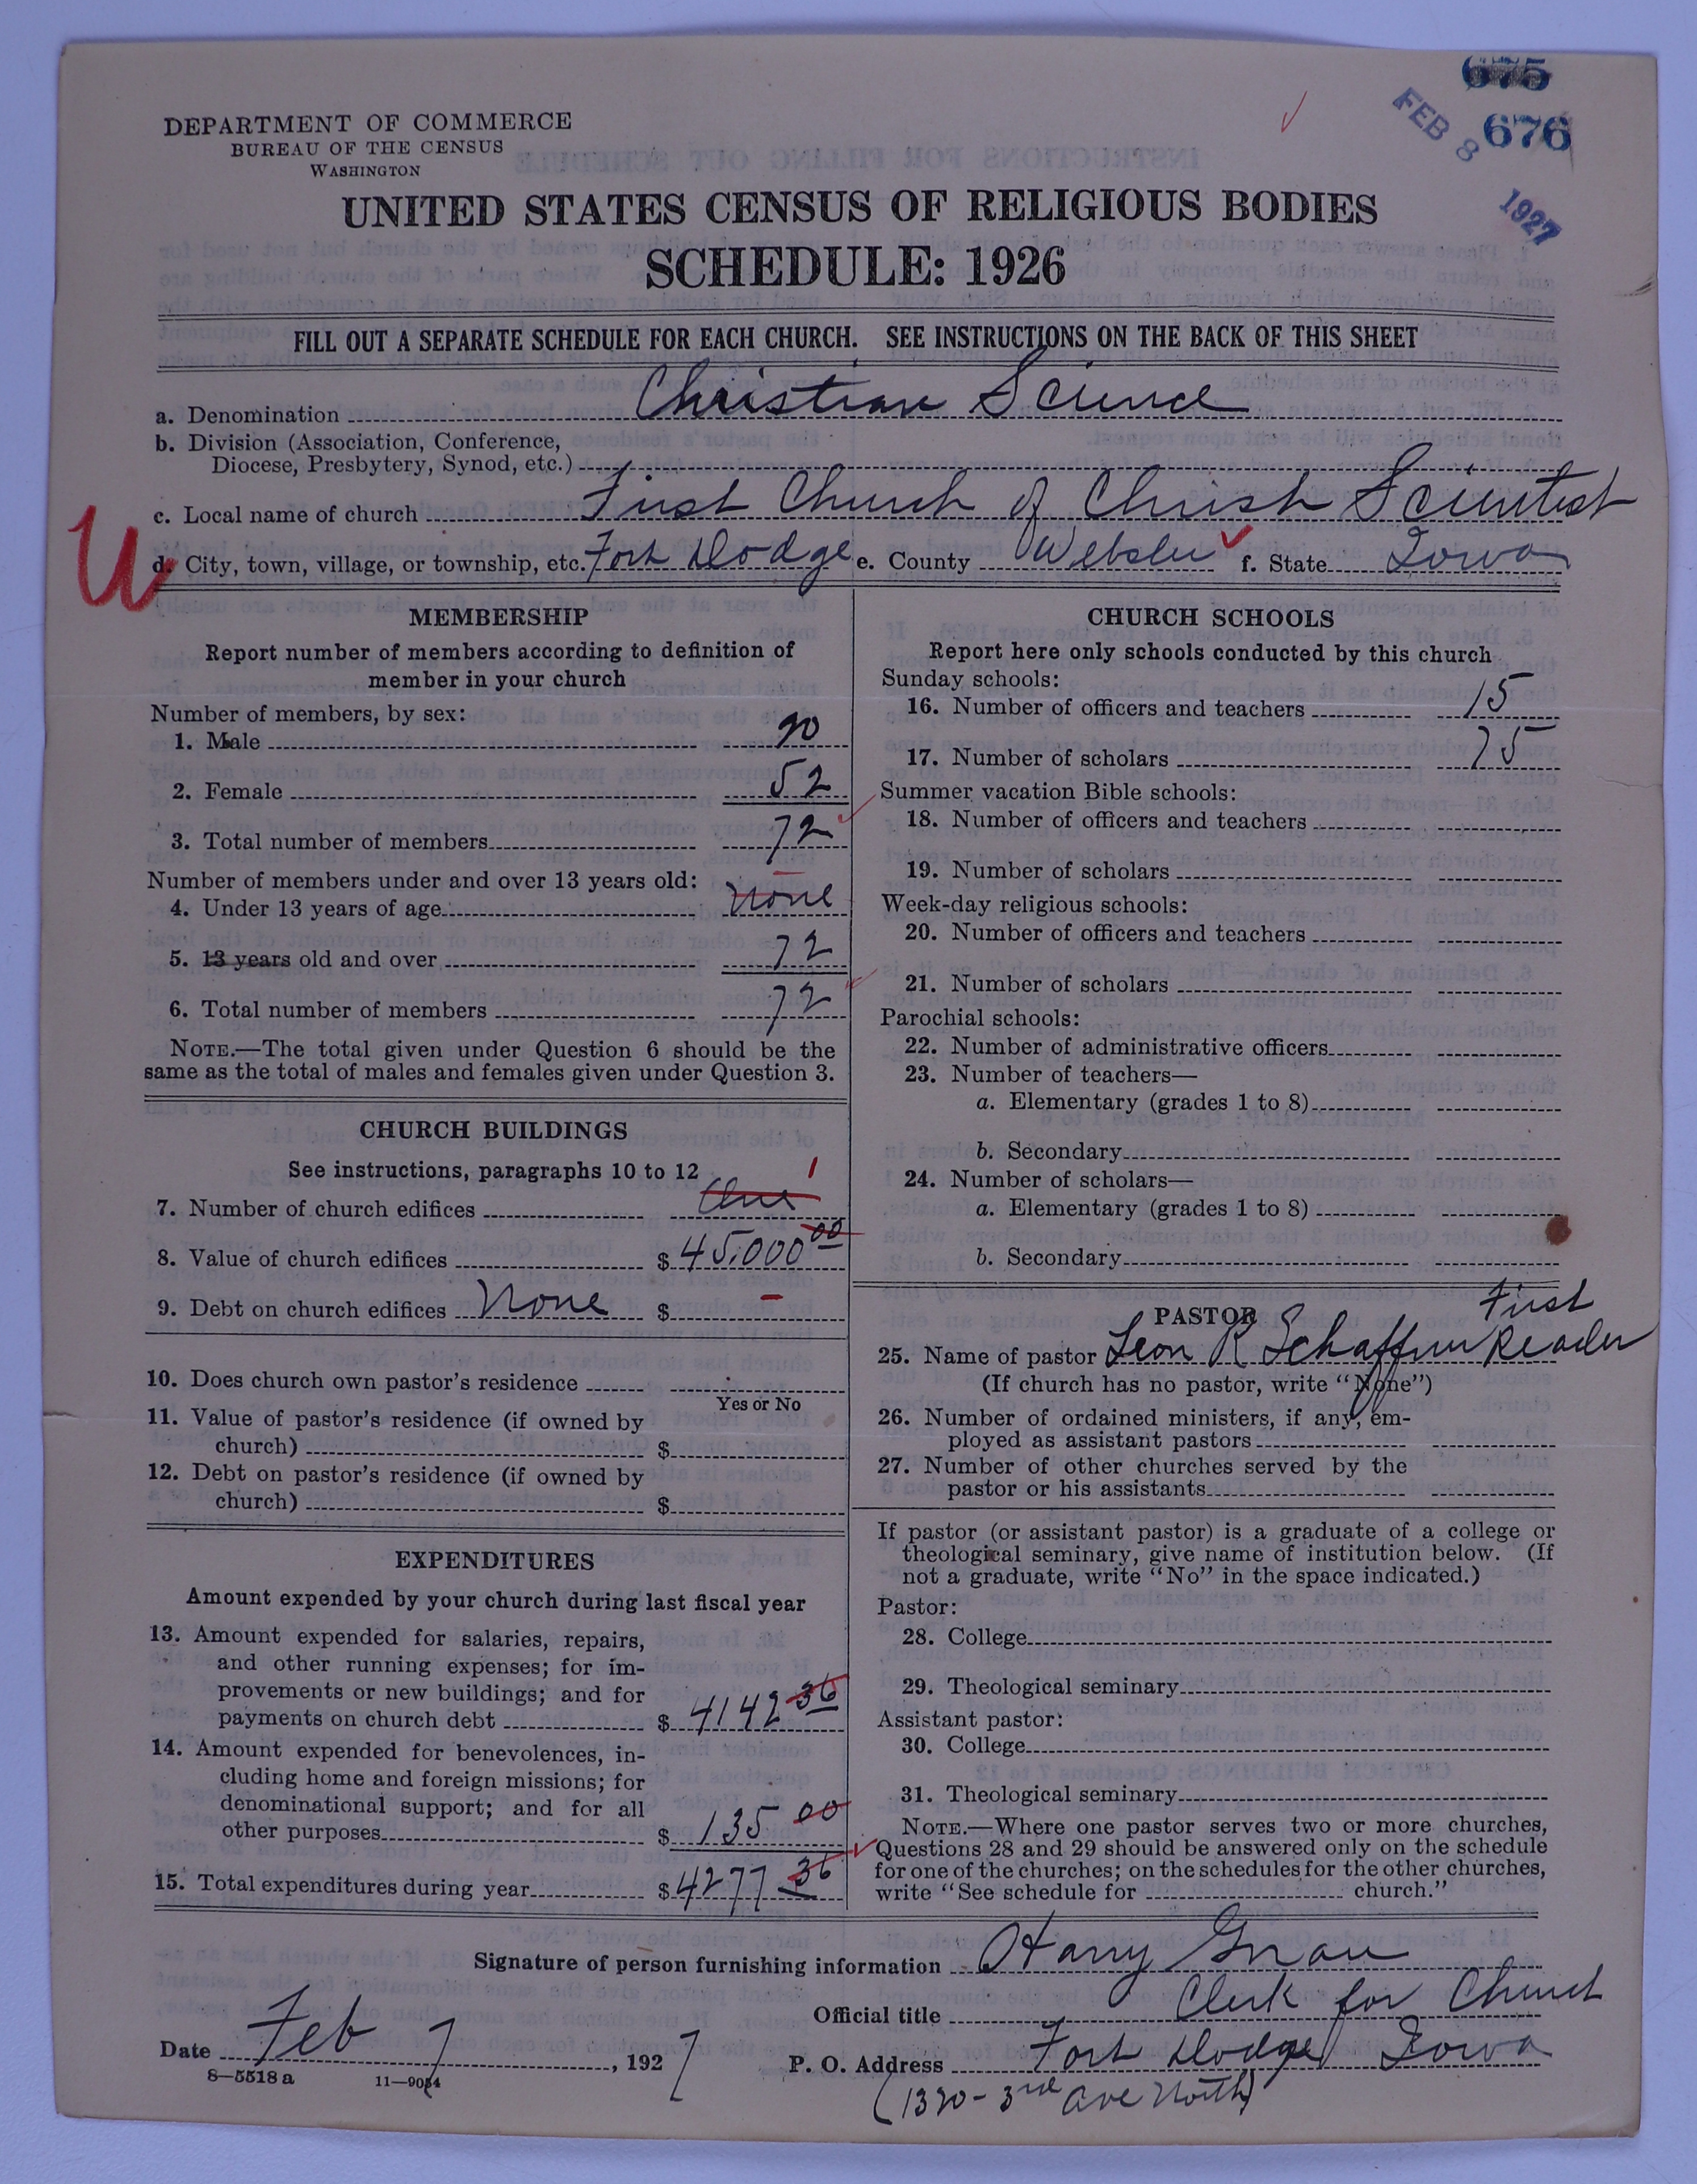 675
676
FEB 8 1927
DEPARTMENT OF COMMERCE
BUREAU OF THE CENSUS
WASHINGTON
UNITED STATES CENSUS OF RELIGIOUS BODIES
SCHEDULE: 1926
FILL OUT A SEPARATE SCHEDULE FOR EACH CHURCH. SEE INSTRUCTIONS ON THE BACK OF THIS SHEET
a. Denomination Christian Science
b. Division (Association, Conference,
Diocese, Presbytery, Synod, etc.)
c. Local name of church First Church of Christ Scientist
d. City, town, village, or township, etc. Fort Dodge e. County Webster f. State Iowa
MEMBERSHIP
Report number of members according to definition of
member in your church
Number of members, by sex:
1. Male 20
2. Female 52
3. Total number of members 72
Number of members under and over 13 years old:
4. Under 13 years of age none
5. 13 years old and over 72
6. Total number of members 72
NOTE.—The total given under Question 6 should be the
same as the total of males and females given under Question 3.
CHURCH BUILDINGS
See instructions, paragraphs 10 to 12
7. Number of church edifices One 1
8. Value of church edifices $ 45,000 00
9. Debt on church edifices None $ –
10. Does church own pastor's residence
Yes or No
11. Value of pastor's residence (if owned by
church) $
12. Debt on pastor's residence (if owned by
church) $
EXPENDITURES
Amount expended by your church during last fiscal year
13. Amount expended for salaries, repairs,
and other running expenses; for im-
provements or new buildings; and for
payments on church debt $ 4142 36
14. Amount expended for benevolences, in-
cluding home and foreign missions; for
denominational support; and for all
other purposes $ 135 00
15. Total expenditures during year $ 4277 36
CHURCH SCHOOLS
Report here only schools conducted by this church
Sunday schools:
16. Number of officers and teachers 15
17. Number of scholars 75
Summer vacation Bible schools:
18. Number of officers and teachers
19. Number of scholars
Week-day religious schools:
20. Number of officers and teachers
21. Number of scholars
Parochial schools:
22. Number of administrative officers
23. Number of teachers—
a. Elementary (grades 1 to 8)
b. Secondary
24. Number of scholars—
a. Elementary (grades 1 to 8)
b. Secondary
PASTOR
25. Name of pastor Leon R Schaffner First Reader
(If church has no pastor, write "None")
26. Number of ordained ministers, if any, em-
ployed as assistant pastors
27. Number of other churches served by the
pastor or his assistants
If pastor (or assistant pastor) is a graduate of a college or
theological seminary, give name of institution below. (If
not a graduate, write "No" in the space indicated.)
Pastor:
28. College
29. Theological seminary
Assistant pastor:
30. College
31. Theological seminary
NOTE.—Where one pastor serves two or more churches,
Questions 28 and 29 should be answered only on the schedule
for one of the churches; on the schedules for the other churches,
write "See schedule for church."
Signature of person furnishing information Harry
Official title Clerk for Church
Date Feb 7, 1927 P. O. Address Fort Dodge Iowa
(1320 - 3rd Ave North)
8—5518 a 11—9054